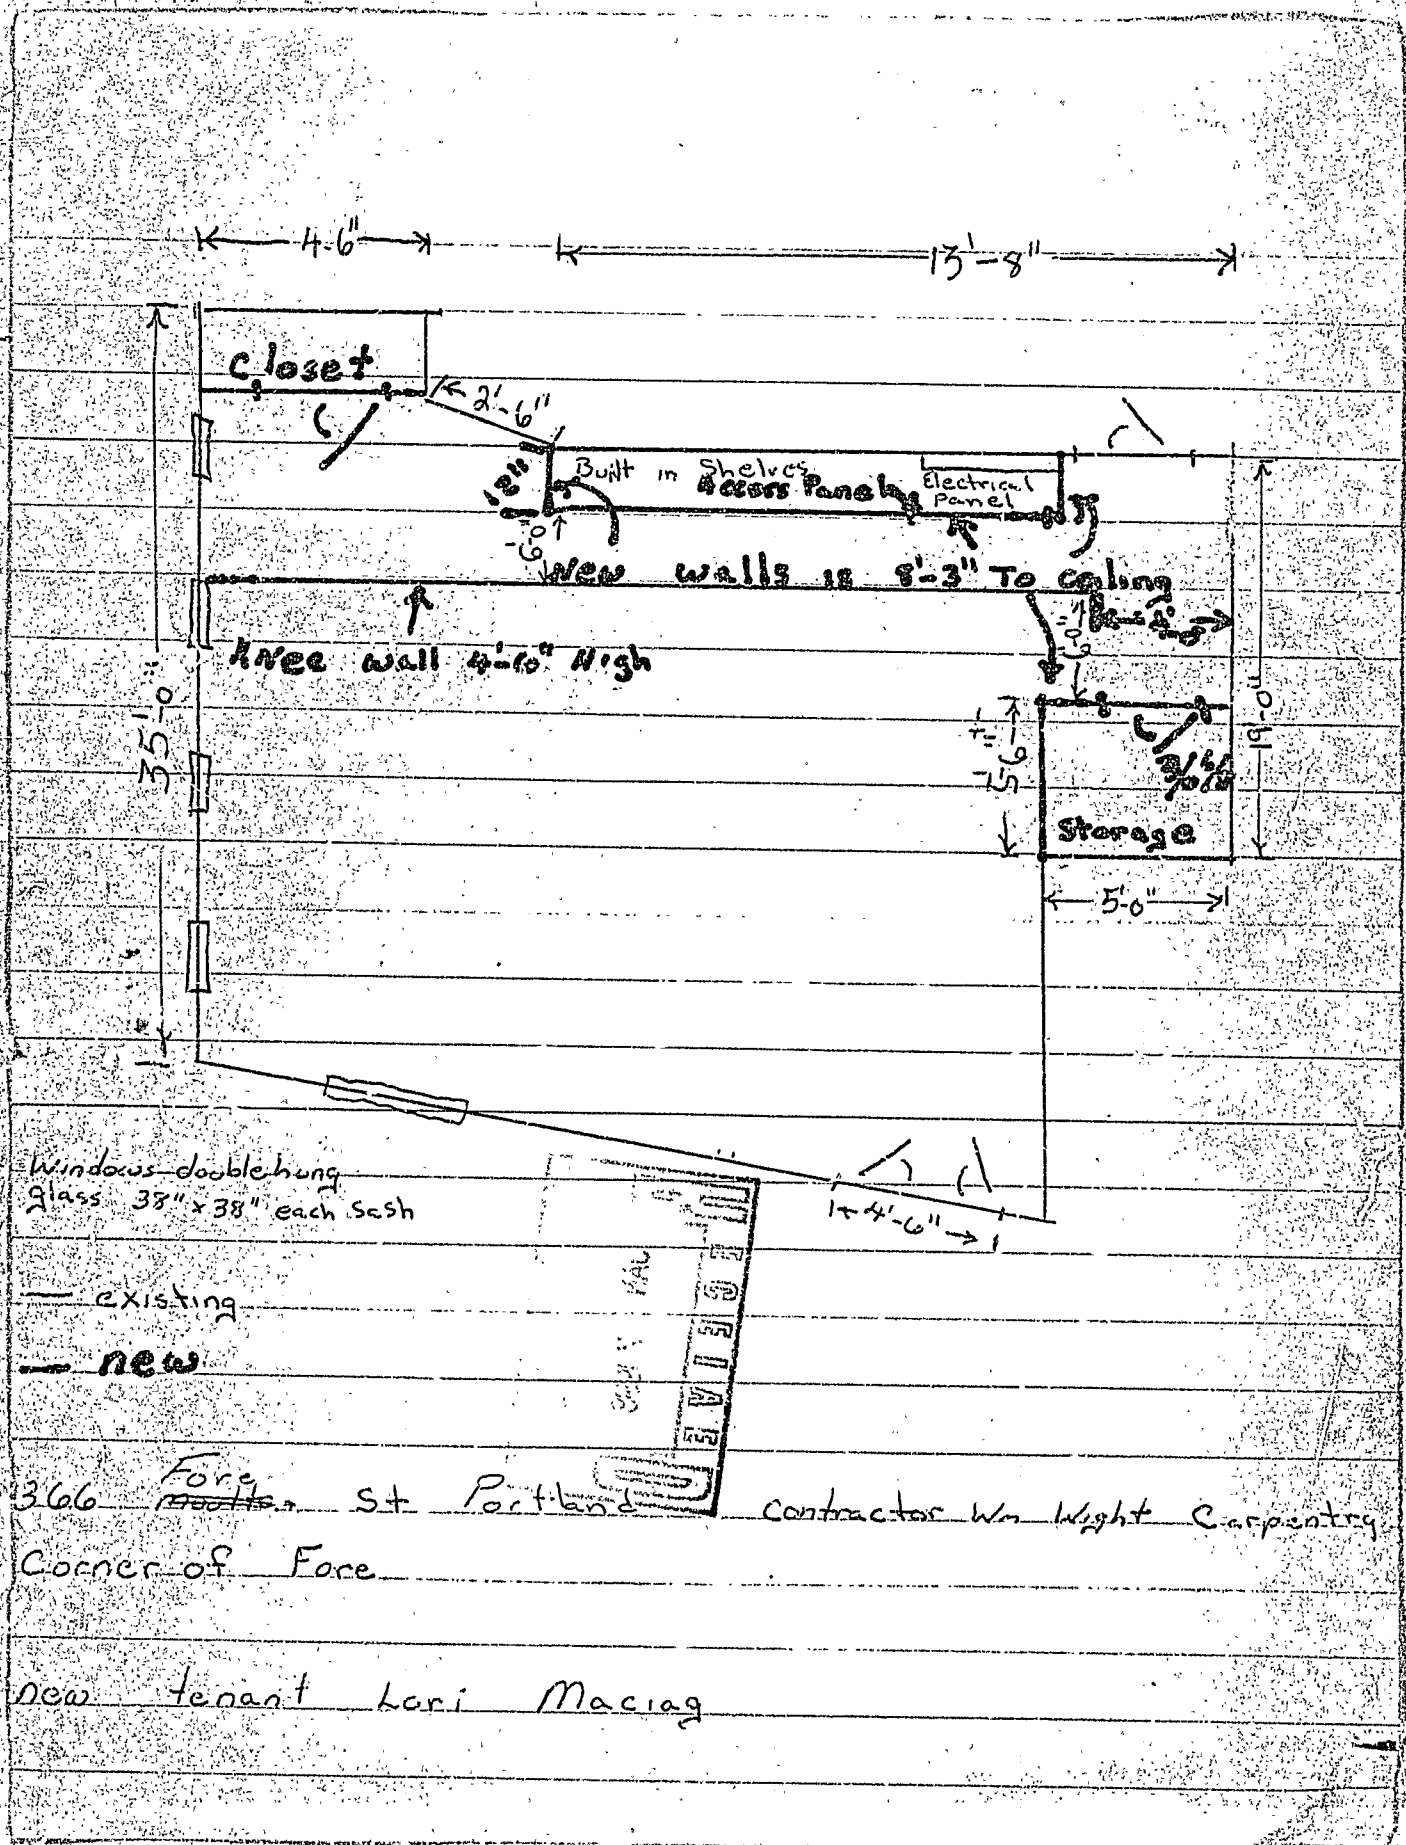 4'-6"
13'-8"
Closet
2'-6"
Built in Shelves
Access Panel
Electrical
Panel
18"
6'-0"
New walls is 8'-3" To ceiling
Knee wall 4'-10" High
35'-0"
19'-0"
5'-6"±
Storage
5'-0"
Windows double hung
glass 38" x 38" each sash
4'-6"
existing
new
RECEIVED
366 Fore St Portland Contractor Wm Wight Carpentry
Corner of Fore
new tenant Lori Maciag